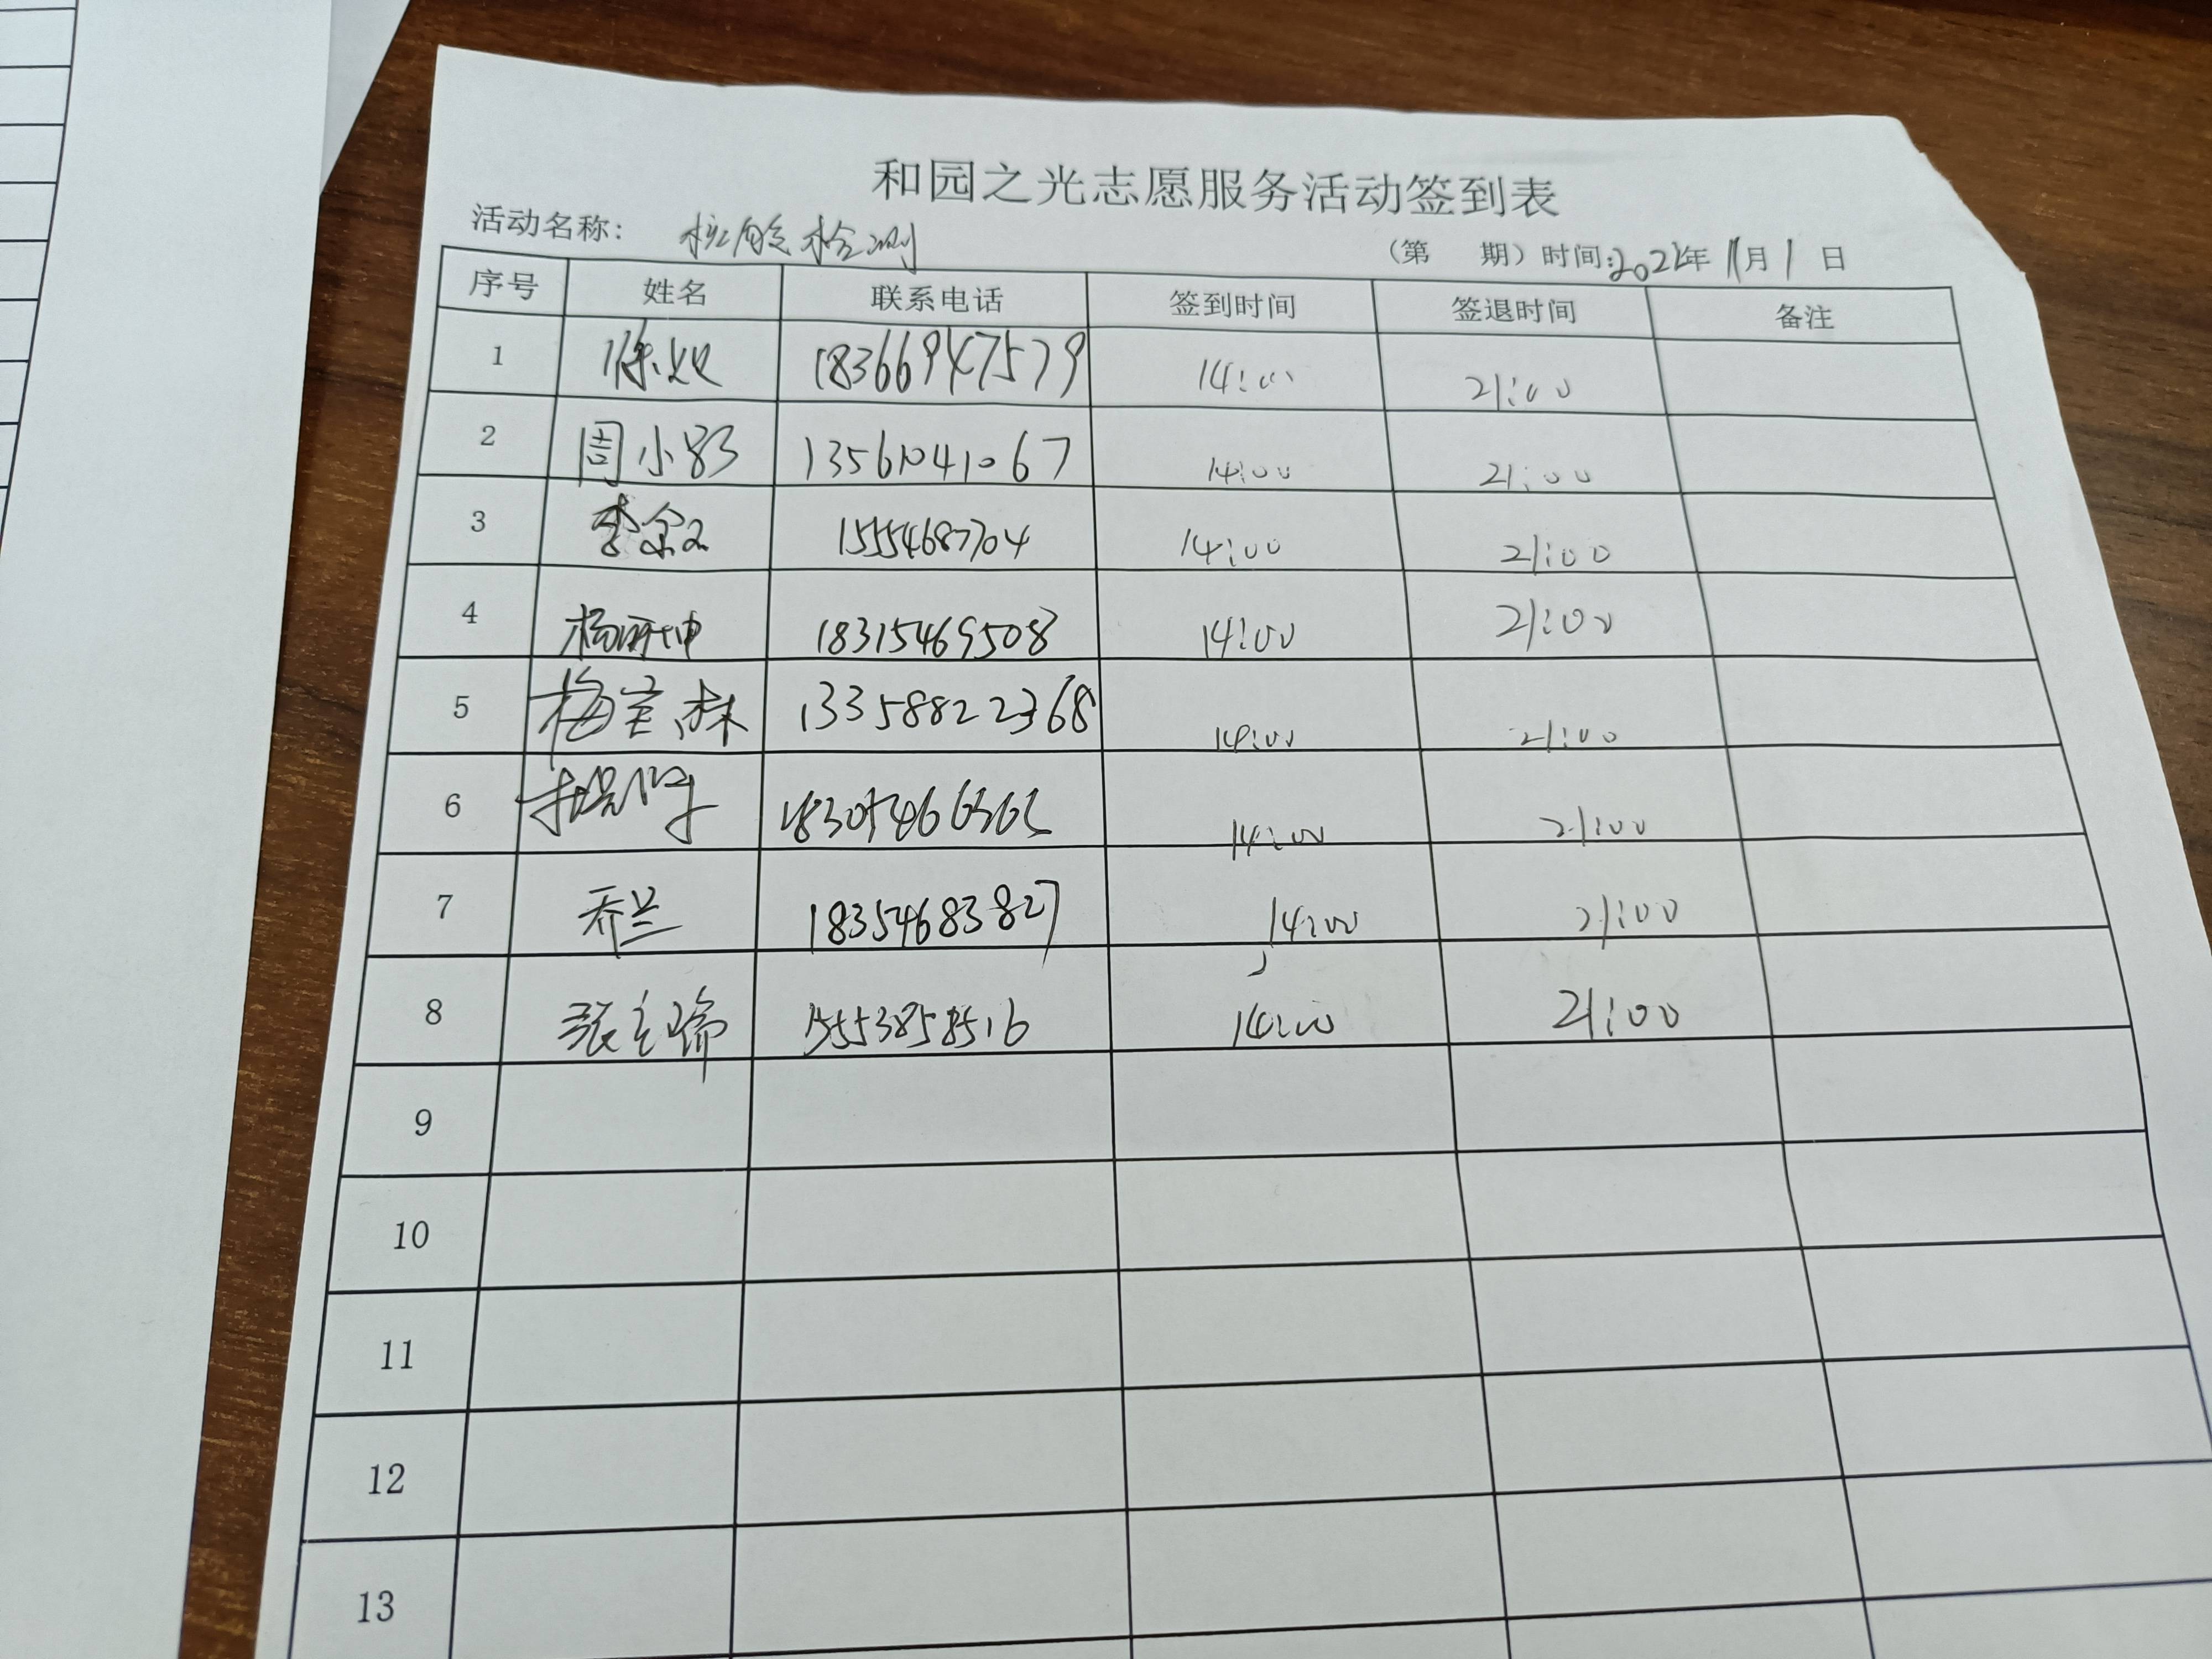 和园之光志愿服务活动签到表
活动名称: 核酸检测 (第 期)时间:2022年11月1日
序号 姓名 联系电话 签到时间 签退时间 备注
1 18366947579 14:00 21:00
2 周小 13561041067 14:00 21:00
3 李 15554687704 14:00 21:00
4 杨 18315469508 14:00 21:00
5 梅 林 13358822368 14:00 21:00
6 14:00 21:00
7 乔兰 18354683827 14:00 21:00
8 张 瑜 15553858516 14:00 21:00
9
10
11
12
13